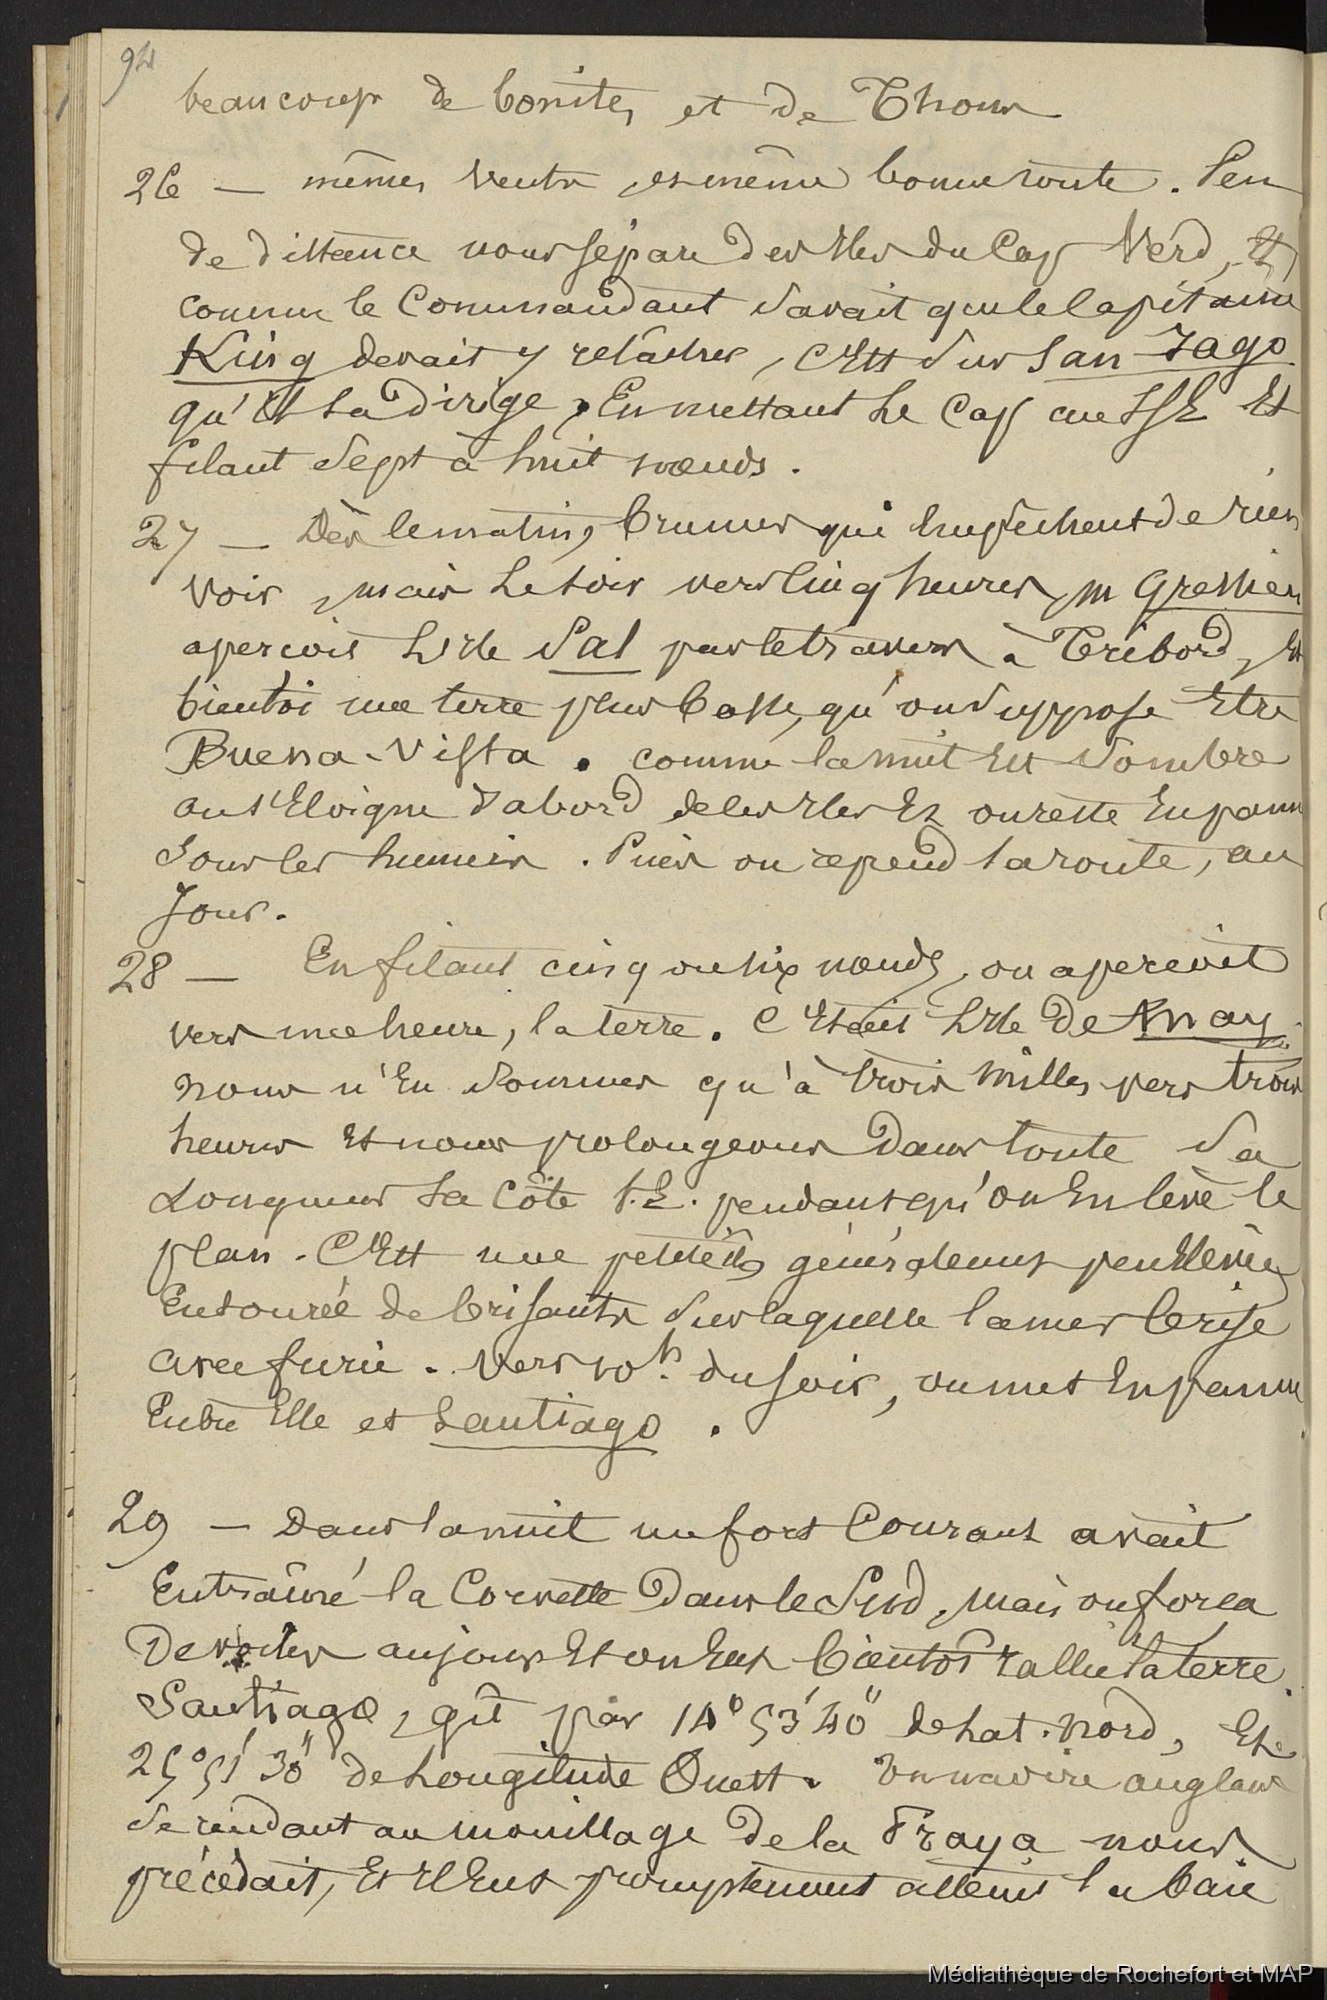 94
beaucoup de bonites et de Thons
26 — mêmes vents, et même bonne route. Peu
de distance nous sépare des Iles du Cap Verd, Et
comme le Commandant Savait que le Capitaine
King devait y relâcher, c'Est Sur San-Iago
qu'il se dirige, En mettant Le Cap au SSE Et
filant Sept à huit nœuds.
27 — Dès le matin, brumes qui Empêchent de rien
voir, mais Le soir vers cinq heures, M Gressien
apercoit L'Ile Sal par le travers à Tribord, Et
bientôt une terre plus basse, qu'on Suppose Etre
Buena-Vista. comme la nuit Est Sombre
on s'Eloigne d'abord de les Iles Et on reste En panne
Sous les huniers. Puis on reprend la route, au
Jour.
28 — En filant cinq ou six nœuds, on apercoit
vers une heure, la terre. C'Etait L'Ile de May.
nous n'En Sommes qu'à trois milles vers trois
heures Et nous prolongeons Dans toute Sa
Longueur La Côte S.E. pendant qu'on Enlève le
plan. C'Est une petite île généralement peu Elevée
Entourée de brisants Sur laquelle la mer brise
avec furie. Vers 10h. du soir, on met En panne
Entre Elle et Santiago.
29 — Dans la nuit un fort Courant avait
Entraîné la Corvette Dans le Sud, mais on força
De voiles au jour Et on Eut bientôt rallié la terre.
Santiago, gît par 14° 53' 40" de Lat. Nord, Et
25° 51' 30" de Longitude Ouest. Un navire anglais
Se rendant au mouillage De la Praya nous
précédait, Et Il Eut promptement atteint la baie
Médiathèque de Rochefort et MAP